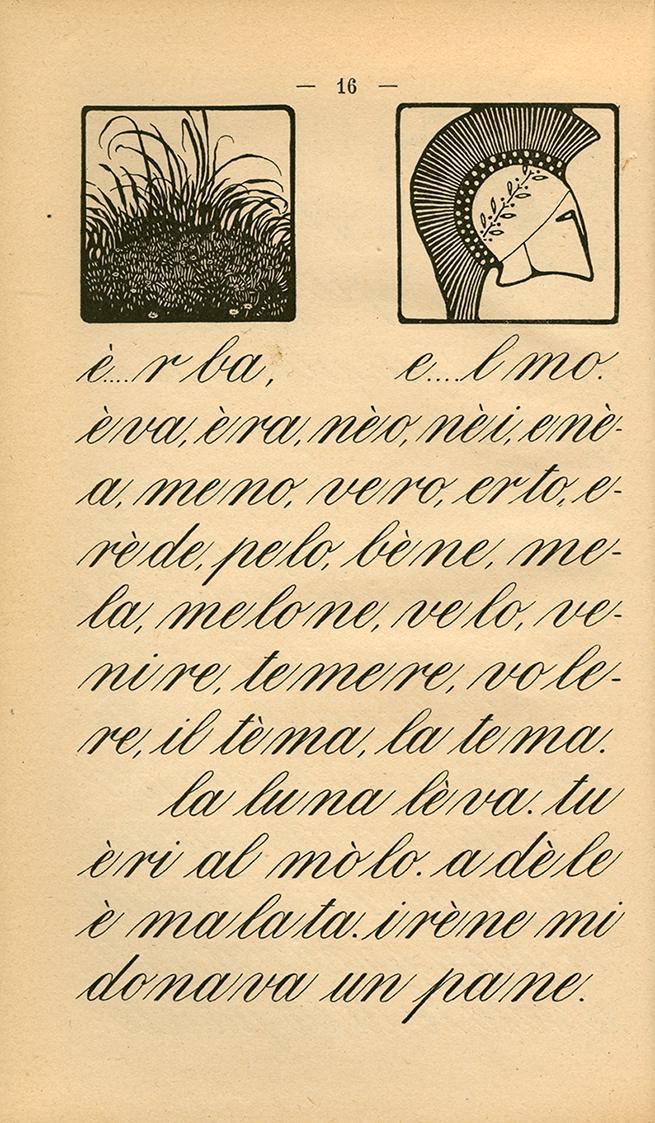 — 16 —
è....r ba, e....l mo.
è va, è ra, nè o, nè i, e nè-
a, me no, ve ro, er to, e-
rè de, pe lo, bè ne, me-
la, me lo ne, ve lo, ve-
ni re, te me re, vo le-
re, il tè ma, la te ma.
la lu na lè va. tu
è ri al mò lo. a dè le
è ma la ta. i rè ne mi
do na va un pa ne.